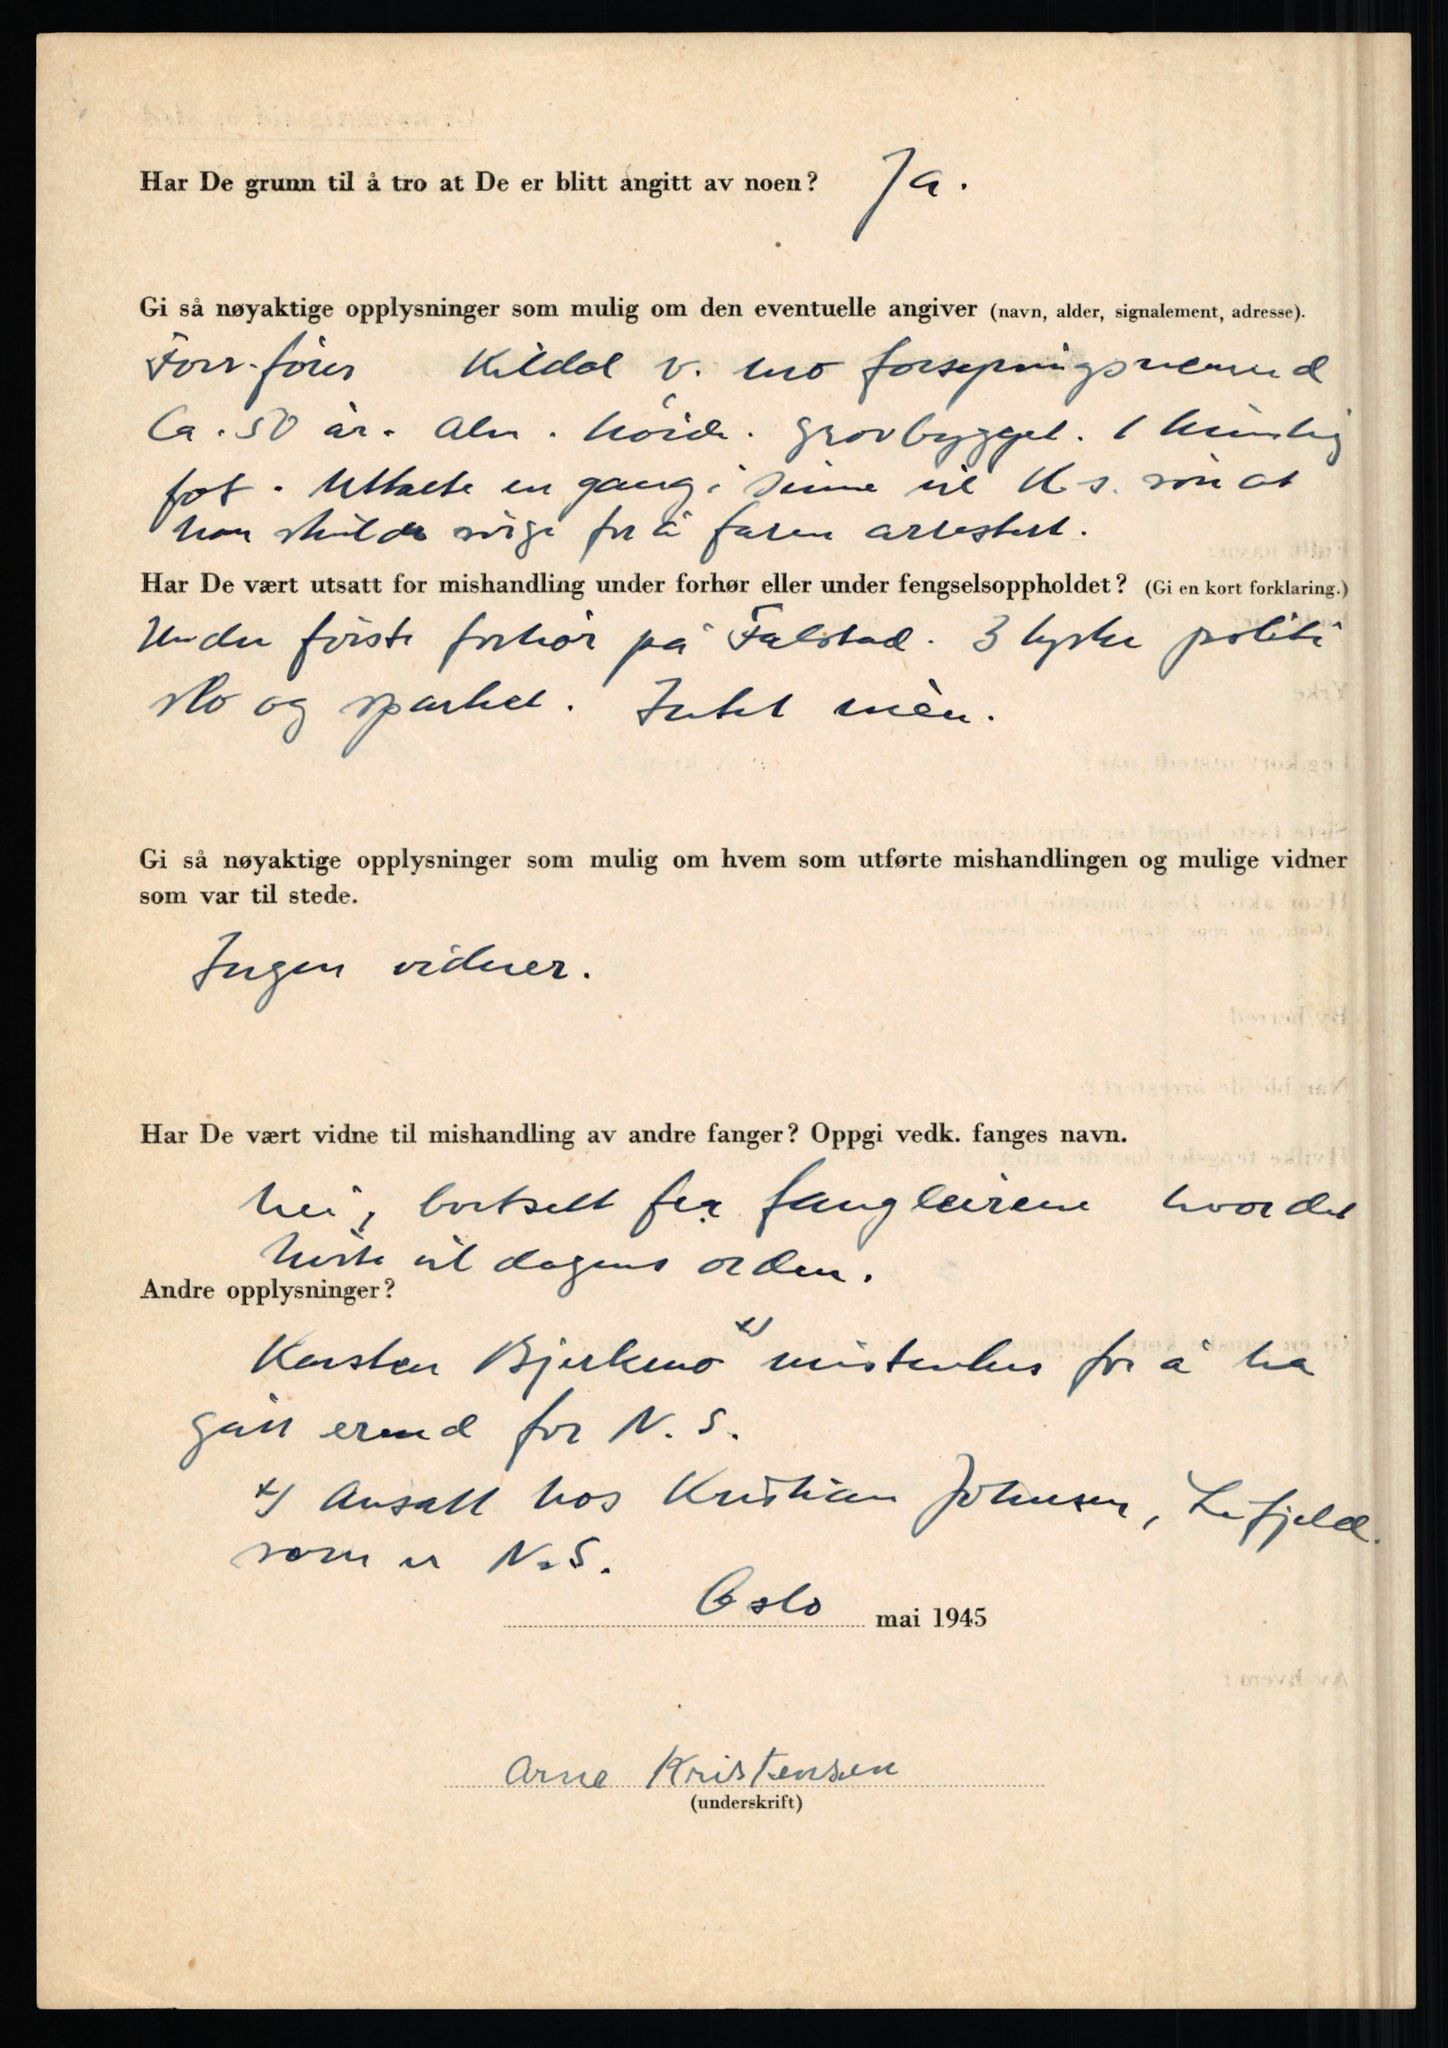 Har De grunn til å tro at De er blitt angitt av noen? Ja.
Gi så nøyaktige opplysninger som mulig om den eventuelle angiver (navn, alder, signalement, adresse).
Forr.fører Kildal v. Mo forsyningsnemnd
Ca. 50 år. Alm. høide. grovbygget. 1 kunstig
fot. Uttalte en gang i sinne til K-s. søn at
han skulde sørge for å faren arrestert.
Har De vært utsatt for mishandling under forhør eller under fengselsoppholdet? (Gi en kort forklaring.)
Under første forhør på Falstad. 3 tyske politi
slo og sparket. Intet mèn.
Gi så nøyaktige opplysninger som mulig om hvem som utførte mishandlingen og mulige vidner
som var til stede.
Ingen vidner.
Har De vært vidne til mishandling av andre fanger? Oppgi vedk. fanges navn.
Nei, bortsett fra fangleirene hvor det
hørte til dagens orden.
Andre opplysninger?
Karsten Bjerkmo x) mistenkes for å ha
gått erend for N.S.
x) Ansatt hos Kristian Johnsen,
som er N.S.
Oslo mai 1945
Arne Kristensen
(underskrift)